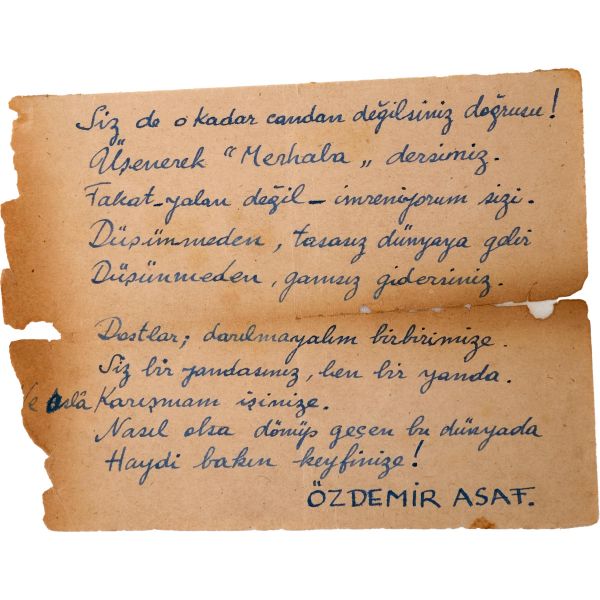 Siz de o kadar candan değilsiniz doğrusu!
Üşenerek "Merhaba„ dersiniz.
Fakat-yalan değil-imreniyorum sizi.
Düşünmeden, tasasız dünyaya gelir
Düşünmeden, gamsız gidersiniz.
Dostlar; darılmayalım birbirimize.
Siz bir yandasınız, ben bir yanda.
Ve aslâ Karışmam işinize.
Nasıl olsa dönüp geçen bu dünyada
Haydi bakın keyfinize!
ÖZDEMİR ASAF.